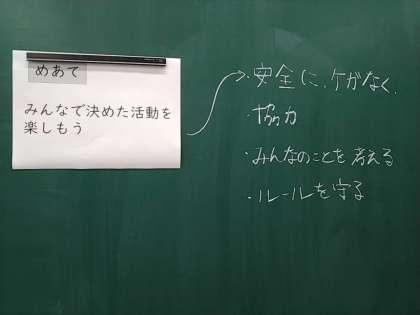 めあて
みんなで決めた活動を
楽しもう
・安全に、ケガなく、
・協力
・みんなのことを考える
・ルールを守る